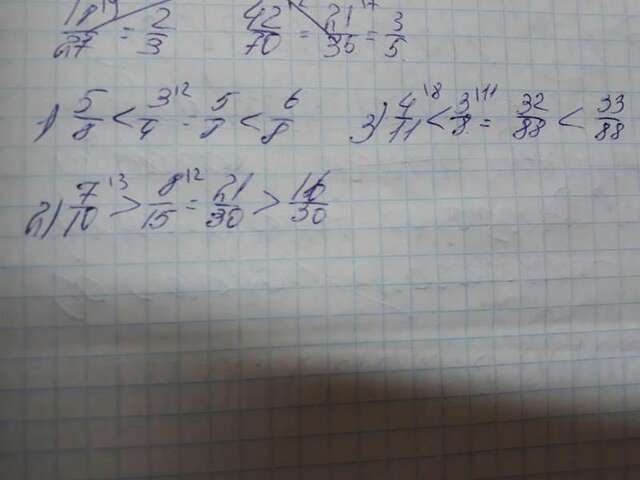 18/27 = 2/3 42/70 = 21/35 = 3/5
1) 5/8 < 3/4 = 5/8 < 6/8 3) 4/11 < 3/8 = 32/88 < 33/88
2) 7/10 > 8/15 = 21/30 > 16/30